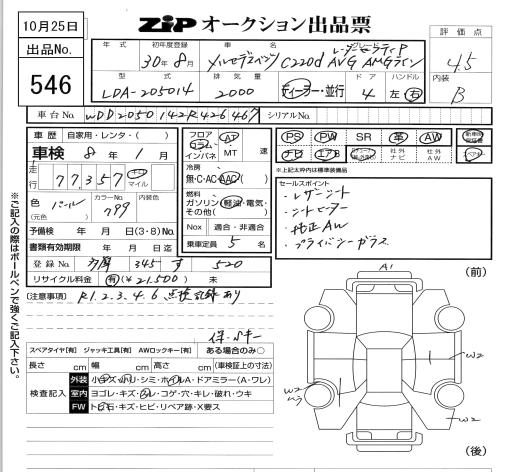 10月25日
出品No.
546
ZIP オークション出品票
評価点
4.5
内装
B
年式
初年度登録 30年8月
車名 メルセデスベンツ C220d
グレード レーザーセーフティP AVG AMGライン
型式 LDA-205014
排気量 2000
ディーラー・並行
ドア 4
ハンドル 左・右
車台No. WDD2050142R426467
シリアルNo.
車歴 自家用・レンタ・( )
車検 8年1月
走行 77,357 キロ マイル
色 パール
(元色)
カラーNo. 799
内装色
予備検 年 月 日(3・8)No.
書類有効期限 年 月 日迄
登録No. 345 す 520
リサイクル料金 有(¥21,500) 未
フロア コラム インパネ
AT MT 速
冷房 無・C・AC・AAC
燃料 ガソリン・軽油・電気・その他( )
Nox 適合・非適合
乗車定員 5 名
PS PW SR 革 AW
ナビ エアB 社外ナビ 社外AW
※上記太枠内は標準装備品
セールスポイント
・レザーシート
・シートヒーター
・純正AW
・プライバシーガラス
(注意事項) R1.2.3.4.6 点検記録あり
保・ホキー
スペアタイヤ[有] ジャッキ工具[有] AWロックキー[有] ある場合のみ○
長さ cm 幅 cm 高さ cm (車検証上の寸法)
検査記入
外装 小キズ・トリ・シミ・ホイルA・ドアミラー(A・ワレ)
室内 ヨゴレ・キズ・スレ・コゲ・穴・キレ・破れ・ウキ
FW トビ石・キズ・ヒビ・リペア跡・X要ス
※ご記入の際はボールペンで強くご記入下さい。
(前)
A1
W2
W2
W2
(後)